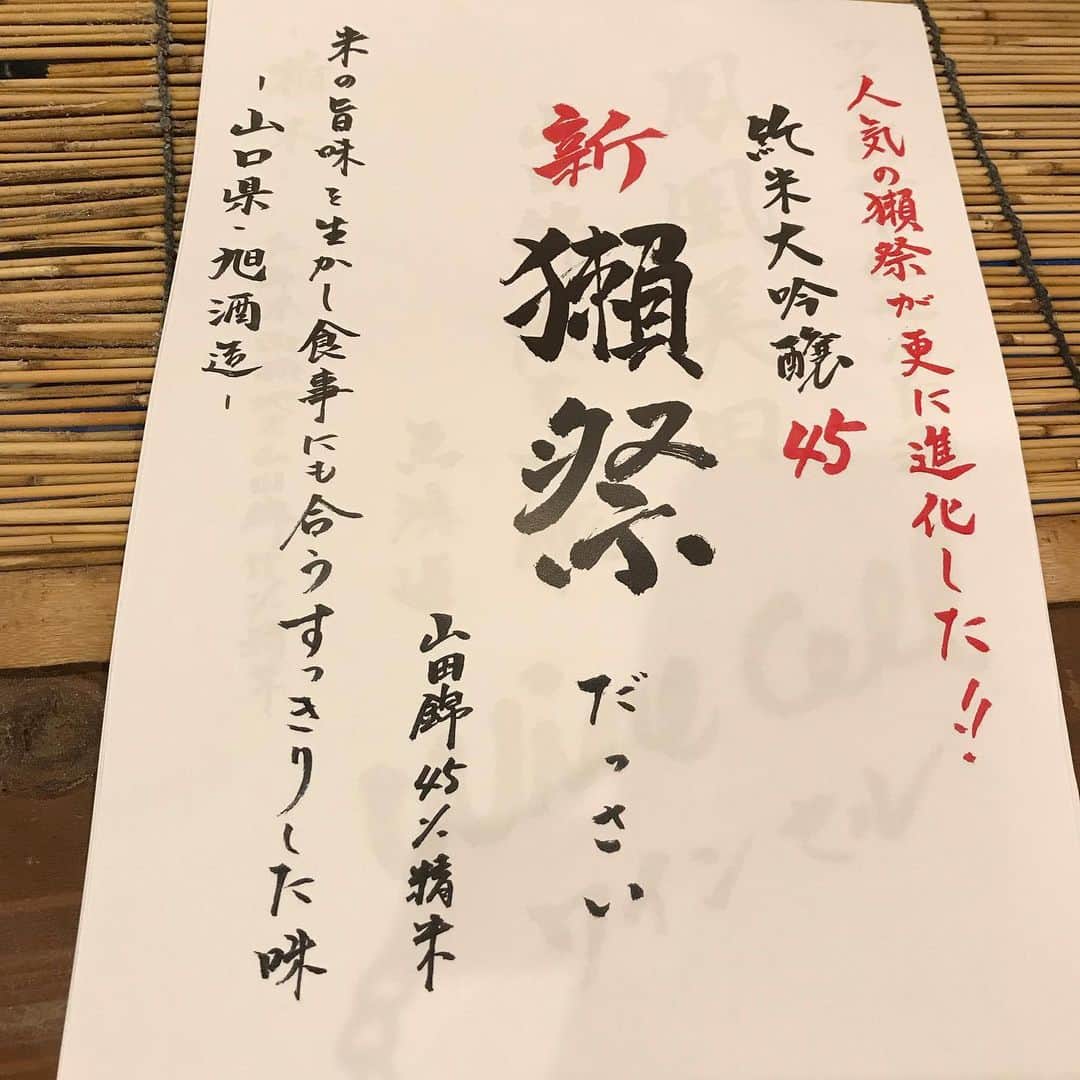 人気の獺祭が更に進化した!!
純米大吟醸 45
新 獺祭 だっさい
山田錦45%精米
米の旨味を生かし食事にも合うすっきりした味
-山口県・旭酒造-